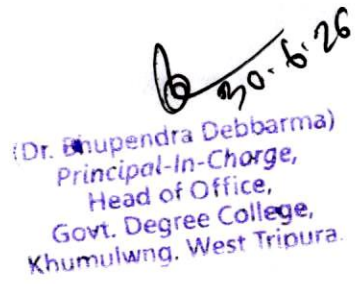 30.6.26
(Dr. Bhupendra Debbarma)
Principal-In-Charge,
Head of Office,
Govt. Degree College,
Khumulwng. West Tripura.